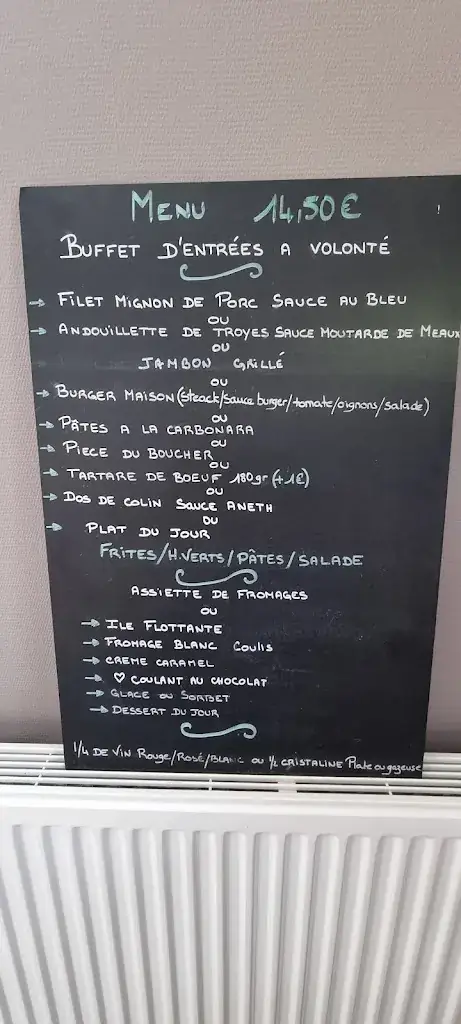 MENU 14,50€ !
BUFFET D'ENTRÉES A VOLONTÉ
→ FILET MIGNON DE PORC SAUCE AU BLEU
OU
→ ANDOUILLETTE DE TROYES SAUCE MOUTARDE DE MEAUX
OU
JAMBON GRILLÉ
OU
→ BURGER MAISON (steack/sauce burger/tomate/oignons/salade)
OU
→ PÂTES A LA CARBONARA
OU
→ PIECE DU BOUCHER
OU
→ TARTARE DE BOEUF 180gr (+1€)
OU
→ DOS DE COLIN SAUCE ANETH
OU
→ PLAT DU JOUR
FRITES/H.VERTS/PÂTES/SALADE
ASSIETTE DE FROMAGES
OU
→ ILE FLOTTANTE
→ FROMAGE BLANC COULIS
→ CREME CARAMEL
→ ♡ COULANT AU CHOCOLAT
→ GLACE OU SORBET
→ DESSERT DU JOUR
1/4 DE VIN ROUGE/ROSÉ/BLANC OU 1/2 CRISTALINE Plate ou gazeuse